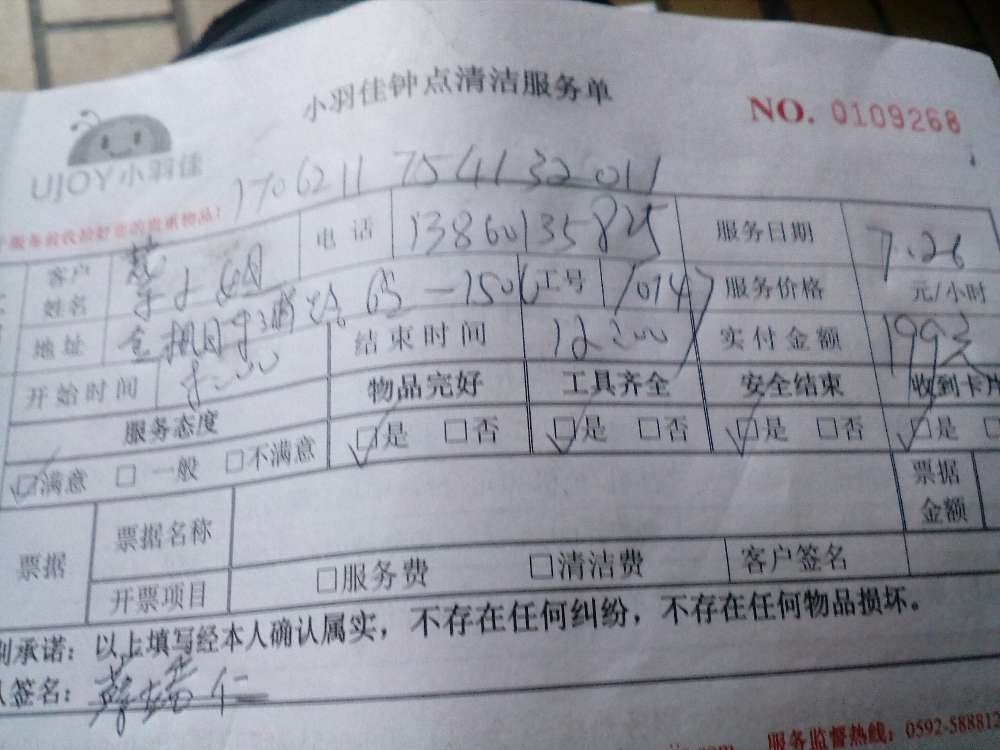 小羽佳钟点清洁服务单
NO. 0109268
UJOY小羽佳
1706211754132011
客户姓名 电话 13860135825 服务日期 7.26
地址 工号 服务价格 元/小时
开始时间 8:00 结束时间 12:00 实付金额 199元
服务态度 物品完好 工具齐全 安全结束 收到卡片
☑满意 □一般 □不满意 ☑是 □否 ☑是 □否 ☑是 □否 ☑是 □
票据 票据名称 票据金额
开票项目 □服务费 □清洁费 客户签名
承诺：以上填写经本人确认属实，不存在任何纠纷，不存在任何物品损坏。
签名：
服务监督热线：0592-588812